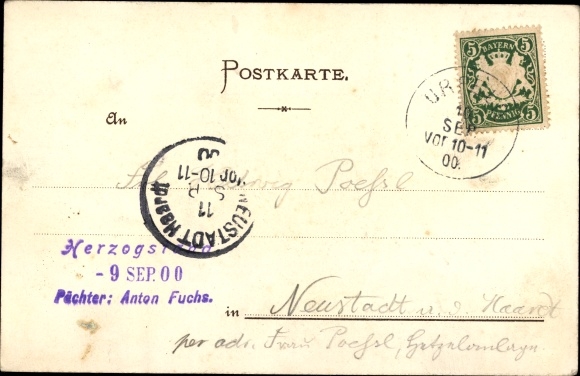 POSTKARTE.
5 BAYERN 5
5 PFENNIG 5
UR
SEP
VOR 10-11
00.
An
NEUSTADT Haardt
11
SEP
Vor 10-11
00
Poehsl
Herzogstand
- 9 SEP. 00
Pächter: Anton Fuchs.
in Neustadt a. d. Haardt
per adr. Frau Poehsl,